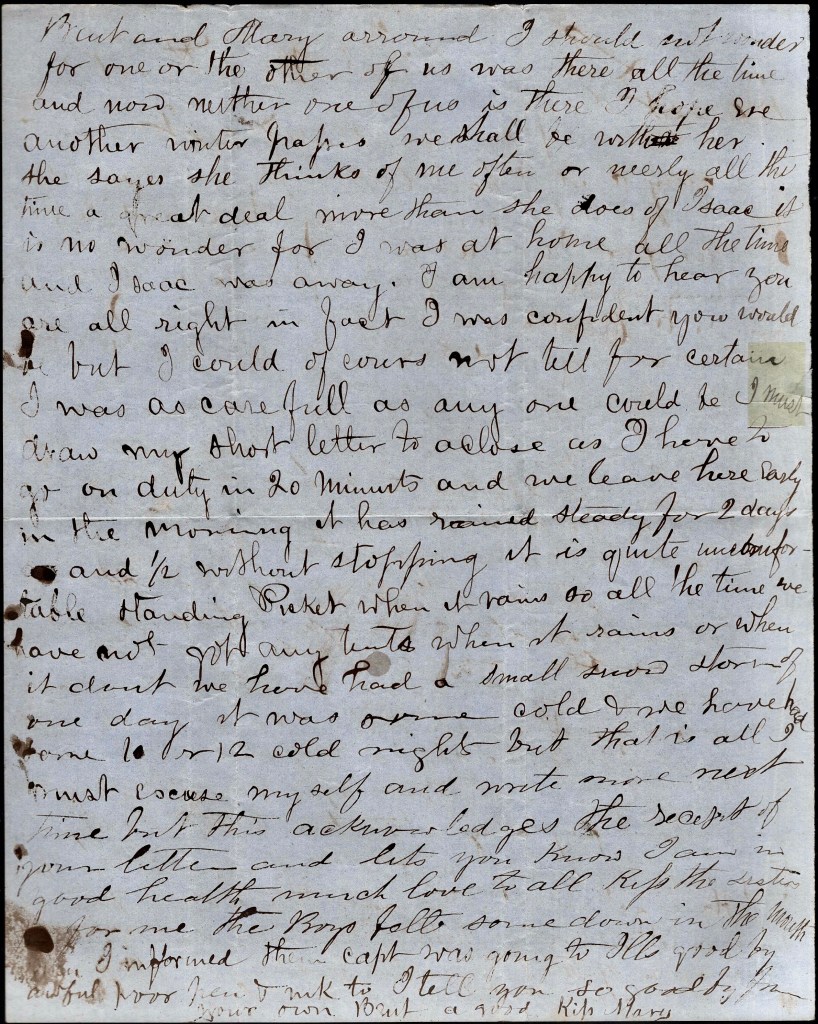 Brut and Mary arround I should not wonder
for one or the other of us was there all the time
and now neither one of us is there I hope ere
another winter passes we shall be with her.
she sayes she thinks of me often or neerly all the
time a great deal more than she does of Isaac it
is no wonder for I was at home all the time
and Isaac was away. I am happy to hear you
are all right in fact I was confident you would
be but I could of cours not tell for certain
I was as carefull as any one could be I must
draw my short letter to a close as I have to
go on duty in 20 Minuts and we leave here early
in the morning it has rained steady for 2 days
and 1/2 without stopping it is quite uncomfor-
table standing Picket when it rains so all the time we
have not got any tents when it rains or when
it dont we have had a small snow storm of
one day it was some cold & we have had
some 10 or 12 cold nights but that is all I
must excuse myself and write more next
time but this acknowledges the receipt of
your letter and lets you know I am in
good health much love to all Kiss the sisters
for me the Boys felt some down in the mouth
when I informed them capt was going to Ills good by
awful poor pen & ink to I tell you so good by for
your own Brut a good Kiss Mary